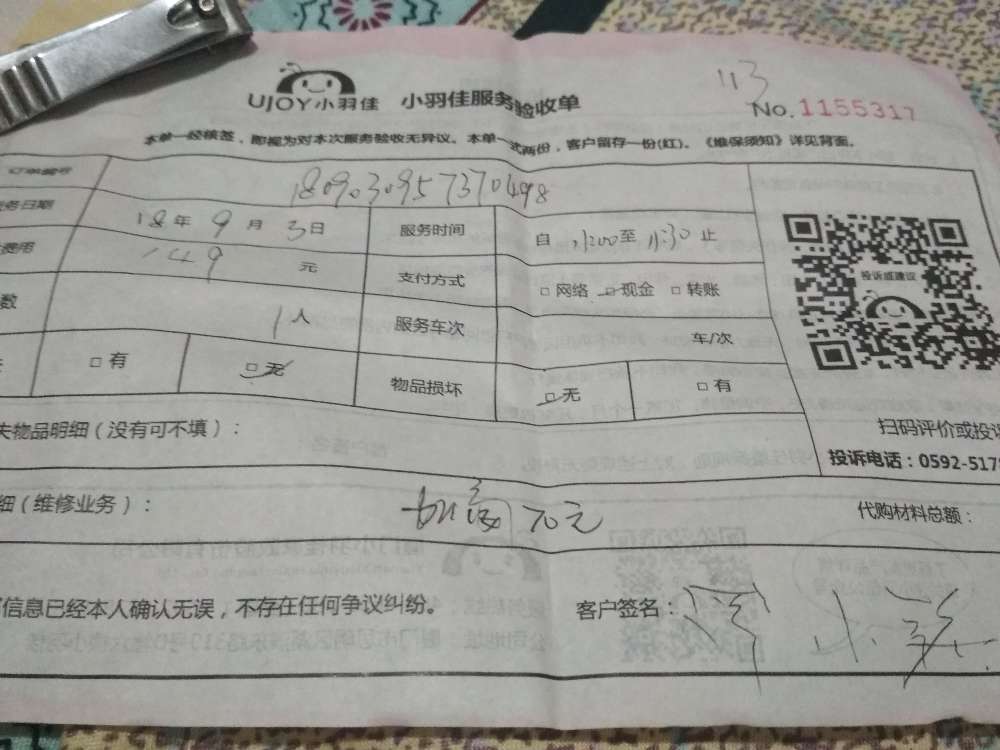 113
UJOY小羽佳 小羽佳服务验收单
No.1155317
本单一经核签，即视为对本次服务验收无异议。本单一式两份，客户留存一份(红)。《维保须知》详见背面。
订单编号 1809030957370498
务日期 18年9月3日 服务时间 自 11:00至 11:30止
费用 149 元 支付方式 □网络 □现金 □转账
数 1人 服务车次 车/次
□有 □无 物品损坏 □无 □有
投诉或建议
扫码评价或投诉
失物品明细(没有可不填)：
投诉电话：0592-5178
细(维修业务)： 加氟70元 代购材料总额：
信息已经本人确认无误，不存在任何争议纠纷。 客户签名：